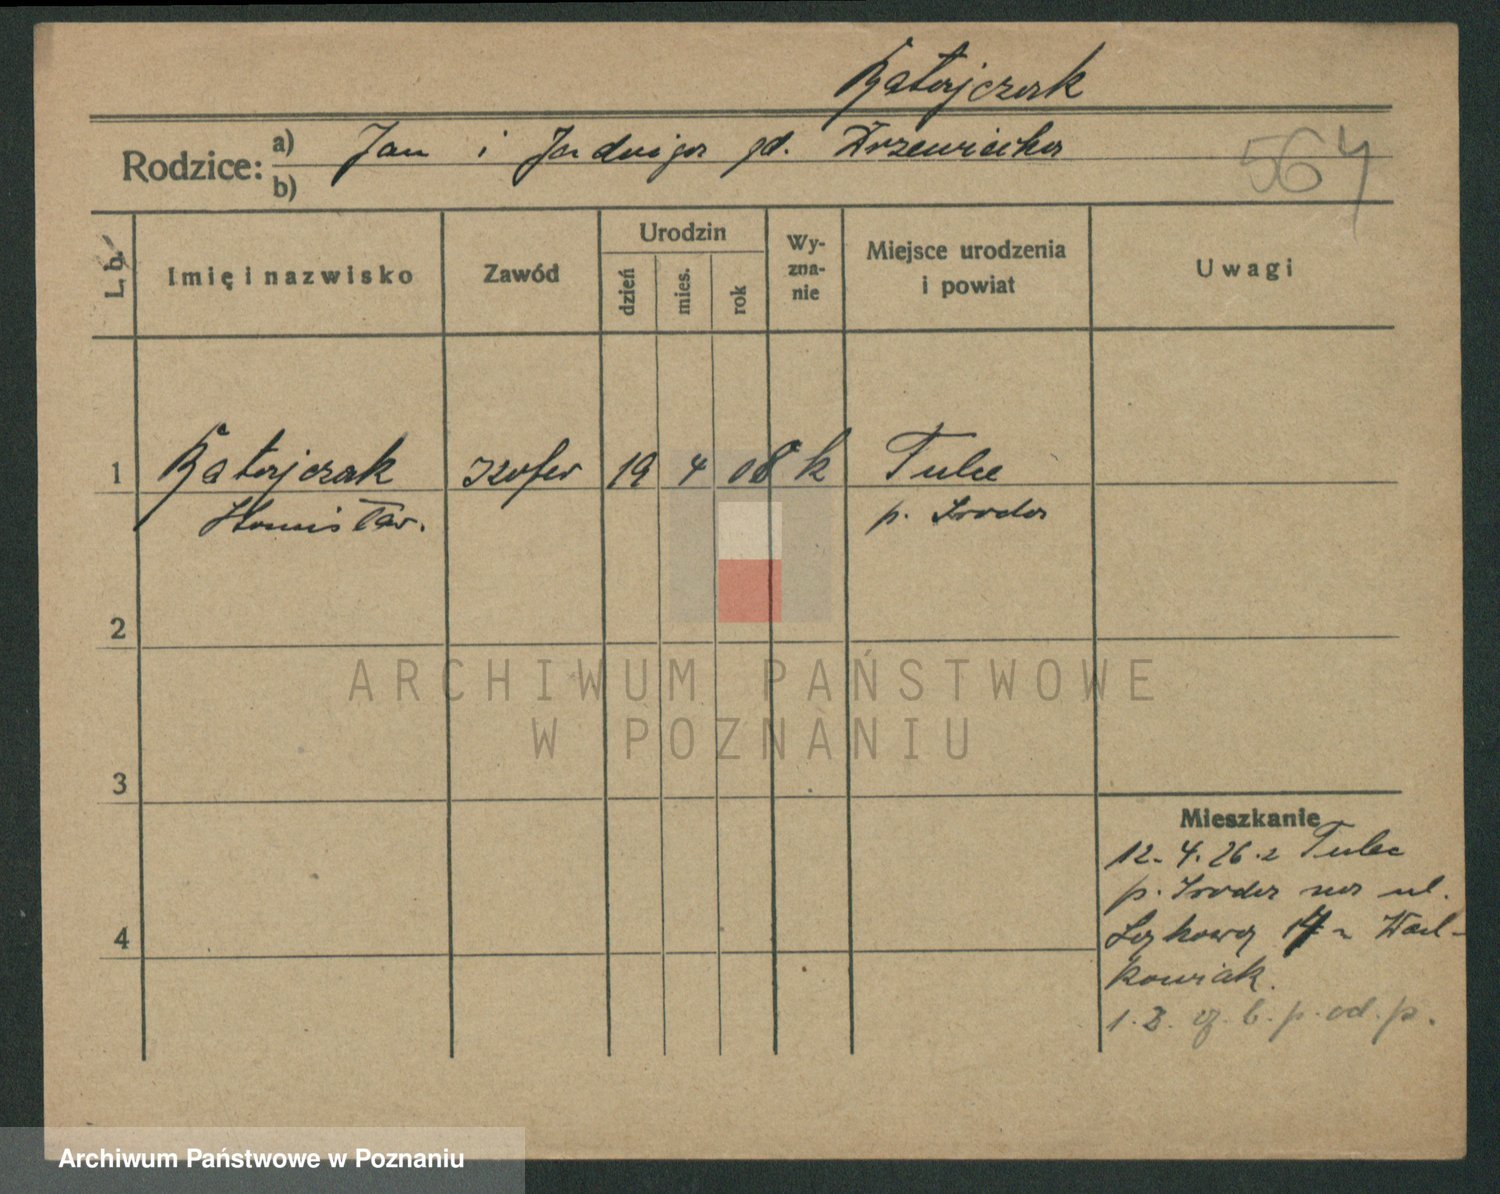 Batajczak
Rodzice:
a) Jan i Jadwiga zd. Krzewińska
b)
564
L. b.
Imię i nazwisko
Zawód
Urodzin
dzień
mies.
rok
Wy-
zna-
nie
Miejsce urodzenia
i powiat
Uwagi
1 Batajczak szofer 19 4 08 k Tulce
Stanisław. p. Środa
2
3
4
Mieszkanie
12. 4. 26. z Tulce
p. Środa na ul.
Łąkową 17
kowiak.
b. p. od. p.
ARCHIWUM PAŃSTWOWE
W POZNANIU
Archiwum Państwowe w Poznaniu